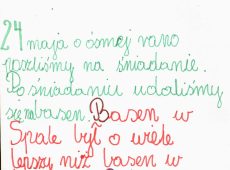 24 maja o ósmej rano
poszliśmy na śniadanie.
Po śniadaniu udaliśmy
się na basen. Basen w
Spale był o wiele
lepszy niż basen w